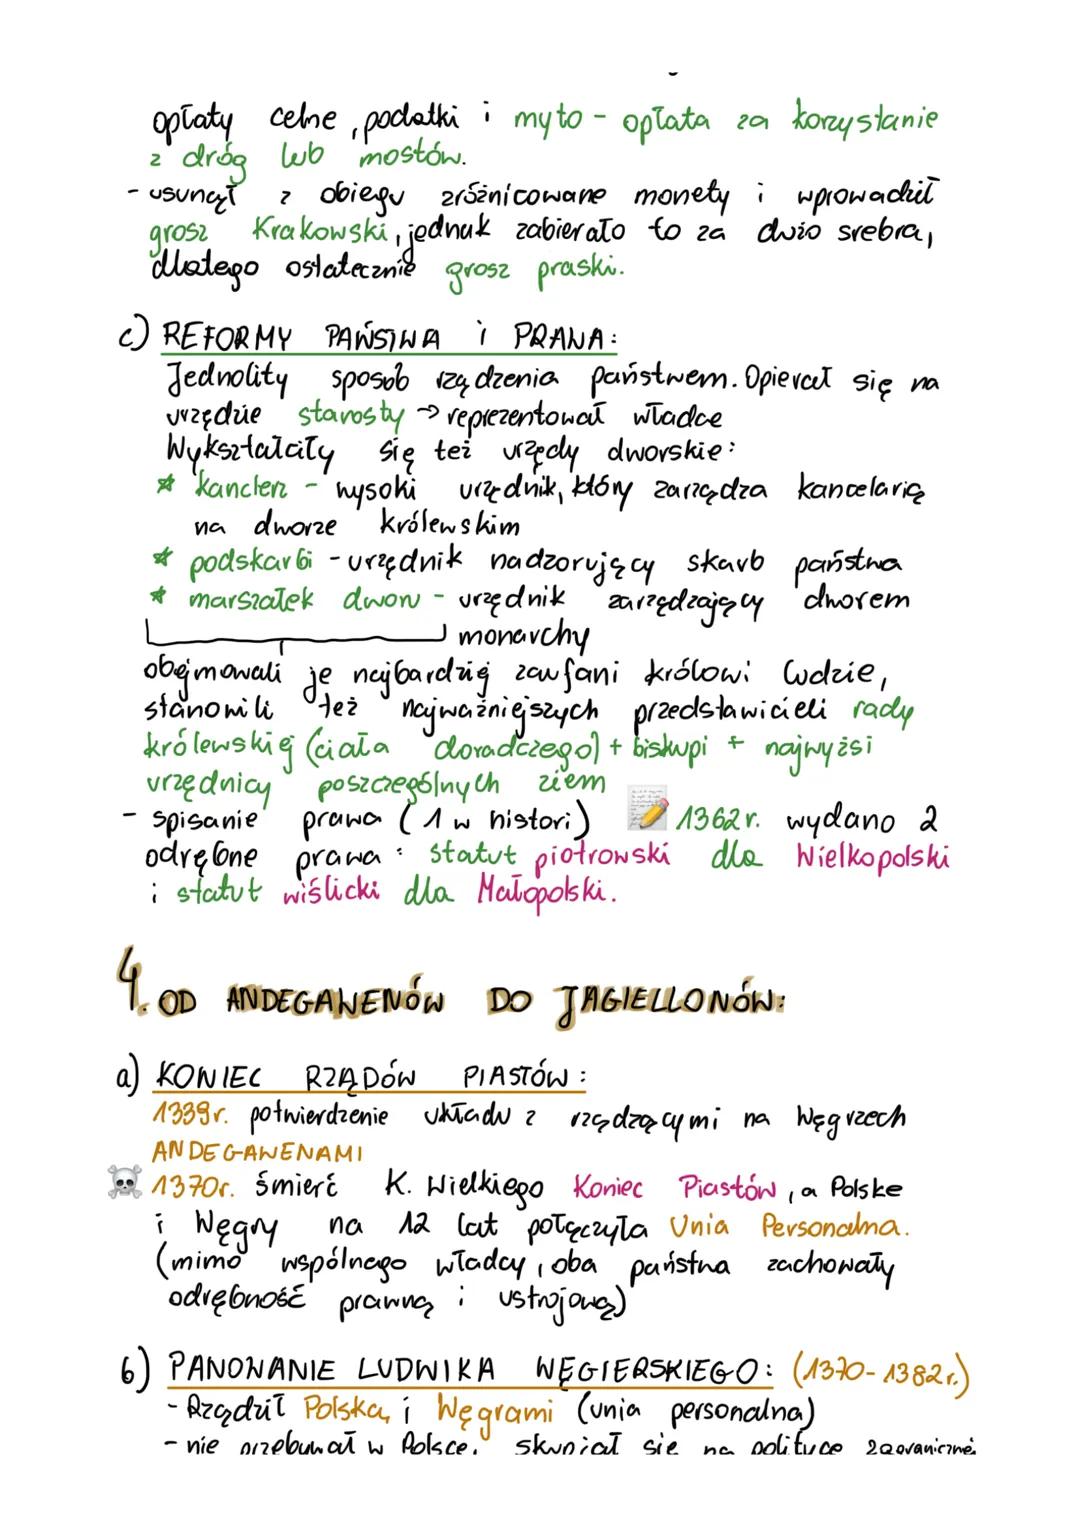 opłaty celne, podatki i myto - opłata za korzystanie
z dróg lub mostów.
- usunął z obiegu zróżnicowane monety i wprowadził
grosz Krakowski, jednak zabierało to za dużo srebra,
dlatego ostatecznie grosz praski.
c) REFORMY PAŃSTWA i PRAWA:
Jednolity sposób rządzenia państwem. Opierał się na
urzędzie starosty → reprezentował władce
Wykształciły się też urzędy dworskie:
* kanclerz - wysoki urzędnik, który zarządza kancelarią
na dworze królewskim
* podskarbi - urzędnik nadzorujący skarb państwa
* marszałek dworu - urzędnik zarządzający dworem
monarchy
obejmowali je najbardziej zaufani królowi ludzie,
stanowili też najważniejszych przedstawicieli rady
królewskiej (ciała doradczego) + biskupi + najwyżsi
urzędnicy poszczególnych ziem
- spisanie prawa (1 w histori) 📝 1362r. wydano 2
odrębne prawa: statut piotrowski dla Wielkopolski
i statut wiślicki dla Małopolski.
4. OD ANDEGAWENÓW DO JAGIELLONÓW:
a) KONIEC RZĄDÓW PIASTÓW:
1339r. potwierdzenie układu z rządzącymi na Węgrzech
ANDEGAWENAMI
☠️ 1370r. śmierć K. Wielkiego Koniec Piastów, a Polske
i Węgry na 12 lat połączyła Unia Personalna.
(mimo wspólnego władcy, oba państwa zachowały
odrębność prawną i ustrojową)
b) PANOWANIE LUDWIKA WĘGIERSKIEGO: (1370-1382r.)
- Rządził Polską i Węgrami (unia personalna)
- nie przebywał w Polsce, skupiał się na polityce zagranicznej